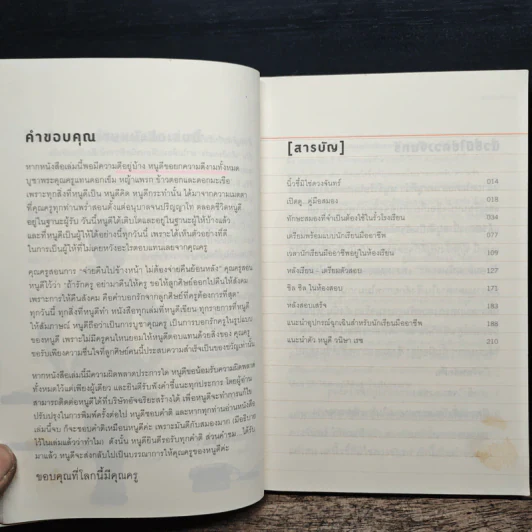 คำขอบคุณ
หากหนังสือเล่มนี้พอมีความดีอยู่บ้าง หนูดีขอยกความดีงามทั้งหมด
บูชาพระคุณครูแทนดอกเข็ม หญ้าแพรก ข้าวตอกและดอกมะเขือ
เพราะทุกสิ่งที่หนูดีเป็น หนูดีคิด หนูดีกระทำนั้น ได้มาจากความเมตตา
ที่คุณครูทุกท่านพร่ำสอนตั้งแต่อนุบาลจนปริญญาโท ตลอดชีวิตหนูดี
อยู่ในฐานะผู้รับ วันนี้หนูดีได้เติบโตและอยู่ในฐานะผู้ให้บ้างแล้ว
และที่หนูดีเป็นผู้ให้ได้อย่างนี้ทุกวันนี้ เพราะได้เห็นตัวอย่างที่ดี
ในการเป็นผู้ให้ที่ไม่เคยหวังอะไรตอบแทนเลยจากคุณครู
คุณครูสอนการ "จ่ายคืนไปข้างหน้า ไม่ต้องจ่ายคืนย้อนหลัง" คุณครูสอน
หนูดีไว้ว่า "ถ้ารักครู อย่ามาคืนให้ครู ขอให้ลูกศิษย์ออกไปคืนให้สังคม
เพราะการให้คืนสังคม คือคำบอกรักจากลูกศิษย์ที่ครูต้องการที่สุด"
ทุกวันนี้ ทุกสิ่งที่หนูดีทำ หนังสือทุกเล่มที่หนูดีเขียน ทุกรายการที่หนูดี
ให้สัมภาษณ์ หนูดีถือว่าเป็นการบูชาคุณครู เป็นการบอกรักครูในรูปแบบ
ของหนูดี เพราะไม่มีครูคนไหนยอมให้หนูดีตอบแทนด้วยสิ่งของ คุณครู
ขอรับเพียงความชื่นใจที่ลูกศิษย์คนนี้ประสบความสำเร็จเป็นของขวัญเท่านั้น
หากหนังสือเล่มนี้มีความผิดพลาดประการใด หนูดีขอน้อมรับความผิดพลาด
ทั้งหมดไว้แต่เพียงผู้เดียว และยินดีรับฟังคำชี้แนะทุกประการ โดยผู้อ่าน
สามารถติดต่อหนูดีได้ที่บริษัทอัจฉริยะสร้างได้ เพื่อหนูดีจะทำการแก้ไข
ปรับปรุงในการพิมพ์ครั้งต่อไป หนูดีชอบคำติ และหากทุกท่านอ่านหนังสือ
เล่มนี้จบ ก็จะชอบคำติเหมือนหนูดีค่ะ เพราะมันดีกับสมองมาก (มีอธิบาย
ไว้ในเล่มแล้วว่าทำไม) ดังนั้น หนูดียินดีรอรับทุกคำติ ส่วนคำชม ได้รับ
มาแล้ว หนูดีจะส่งกลับไปเป็นบรรณาการให้คุณครูของหนูดีค่ะ
ขอบคุณที่โลกนี้มีคุณครู
[สารบัญ]
นิ้วชี้มิใช่ดวงจันทร์ 014
เปิดตู...คู่มือสมอง 018
ทักษะสมองที่จำเป็นต้องใช้ในรั้วโรงเรียน 034
เตรียมพร้อมแบบนักเรียนมืออาชีพ 077
เวลานักเรียนมืออาชีพอยู่ในห้องเรียน 109
หลังเรียน - เตรียมตัวสอบ 127
ชิล ชิล ในห้องสอบ 171
หลังสอบเสร็จ 183
แนะนำอุปกรณ์ฉุกเฉินสำหรับนักเรียนมืออาชีพ 188
แนะนำตัว หนูดี วนิษา เรซ 210